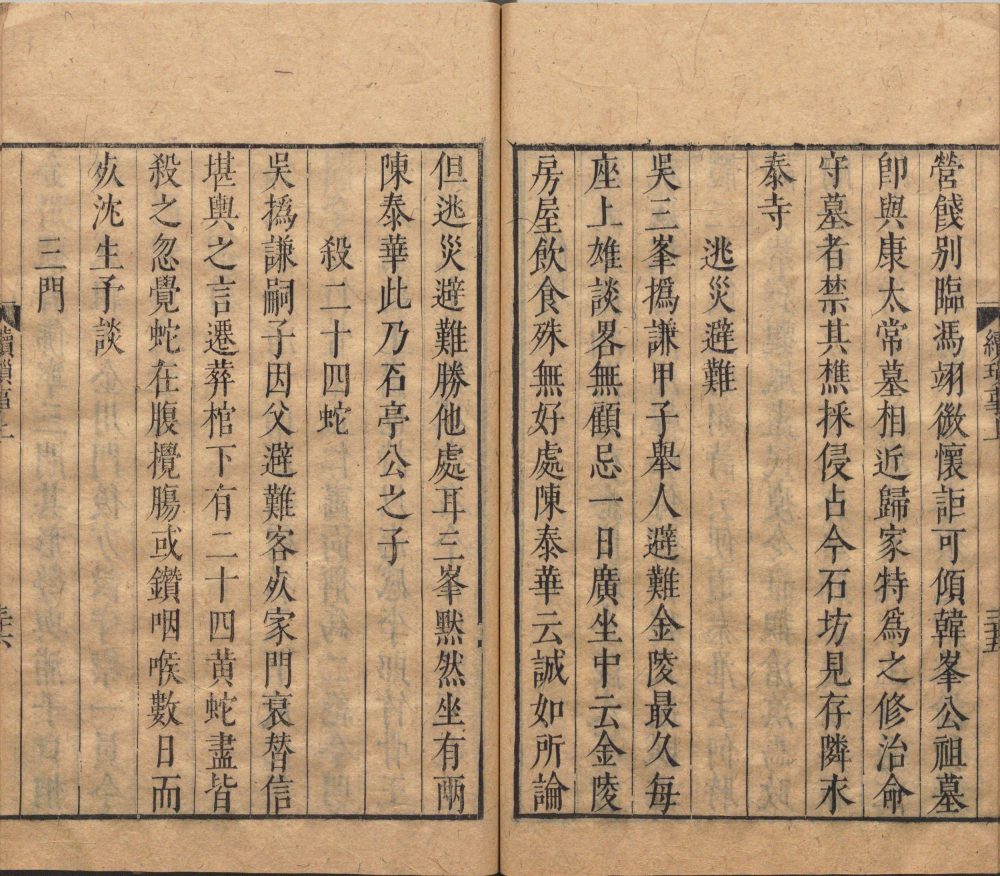 營餞別臨馮翊微懷詎可傾韓峯公祖墓
卽與康太常墓相近歸家特爲之修治命
守墓者禁其樵採侵占今石坊見存隣永
泰寺
逃災避難
吳三峯撝謙甲子舉人避難金陵最久每
座上雄談畧無顧忌一日廣坐中云金陵
房屋飲食殊無好處陳泰華云誠如所論
續瑣事上
三十五
但逃災避難勝他處耳三峯默然坐有兩
陳泰華此乃石亭公之子
殺二十四蛇
吳撝謙嗣子因父避難客死家門衰替信
堪輿之言遷葬棺下有二十四黃蛇盡皆
殺之忽覺蛇在腹攪腸或鑽咽喉數日而
死沈生予談
三門
續瑣事上
三十六